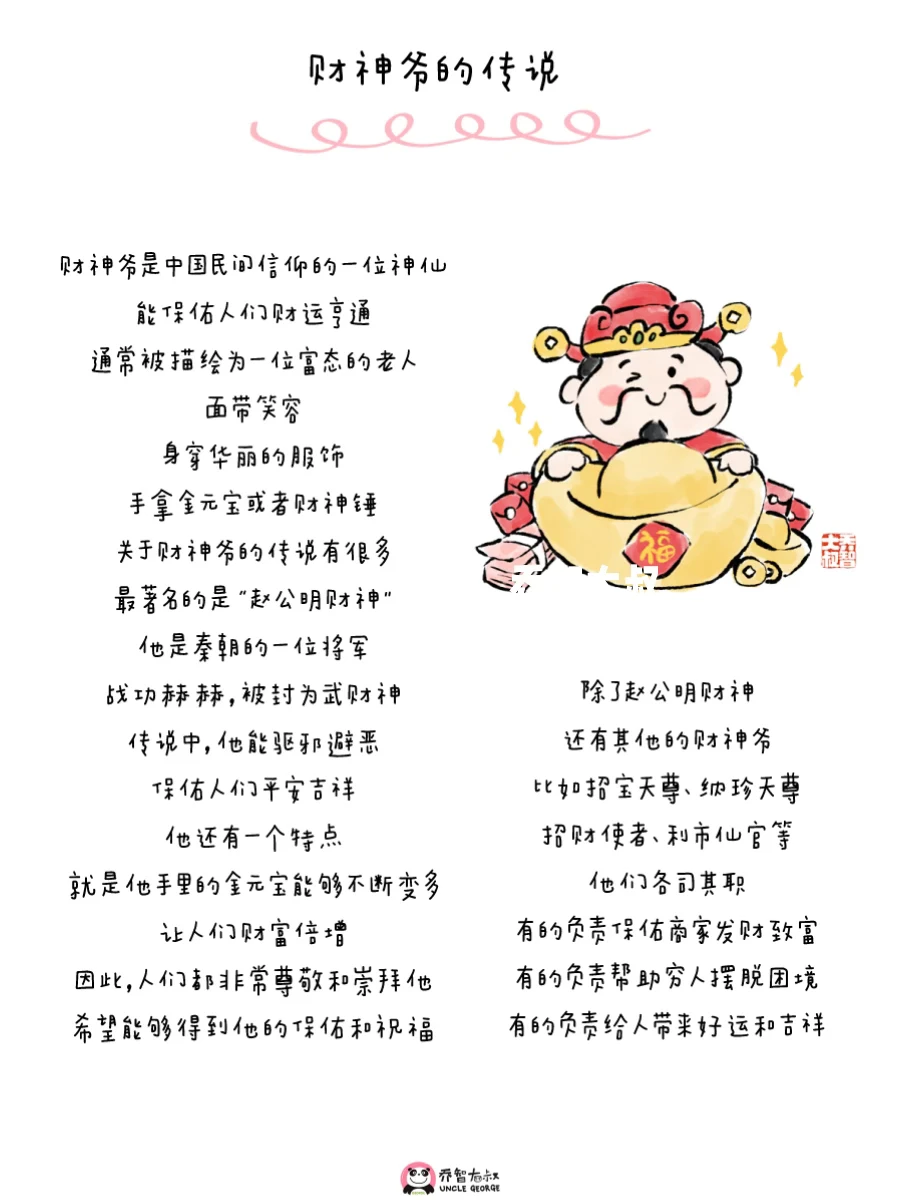 财神爷的传说
财神爷是中国民间信仰的一位神仙
能保佑人们财运亨通
通常被描绘为一位富态的老人
面带笑容
身穿华丽的服饰
手拿金元宝或者财神锤
关于财神爷的传说有很多
最著名的是“赵公明财神”
他是秦朝的一位将军
战功赫赫,被封为武财神
传说中,他能驱邪避恶
保佑人们平安吉祥
他还有一个特点
就是他手里的金元宝能够不断变多
让人们财富倍增
因此,人们都非常尊敬和崇拜他
希望能够得到他的保佑和祝福
福
乔智大叔
除了赵公明财神
还有其他的财神爷
比如招宝天尊、纳珍天尊
招财使者、利市仙官等
他们各司其职
有的负责保佑商家发财致富
有的负责帮助穷人摆脱困境
有的负责给人带来好运和吉祥
乔智大叔
UNCLE GEORGE